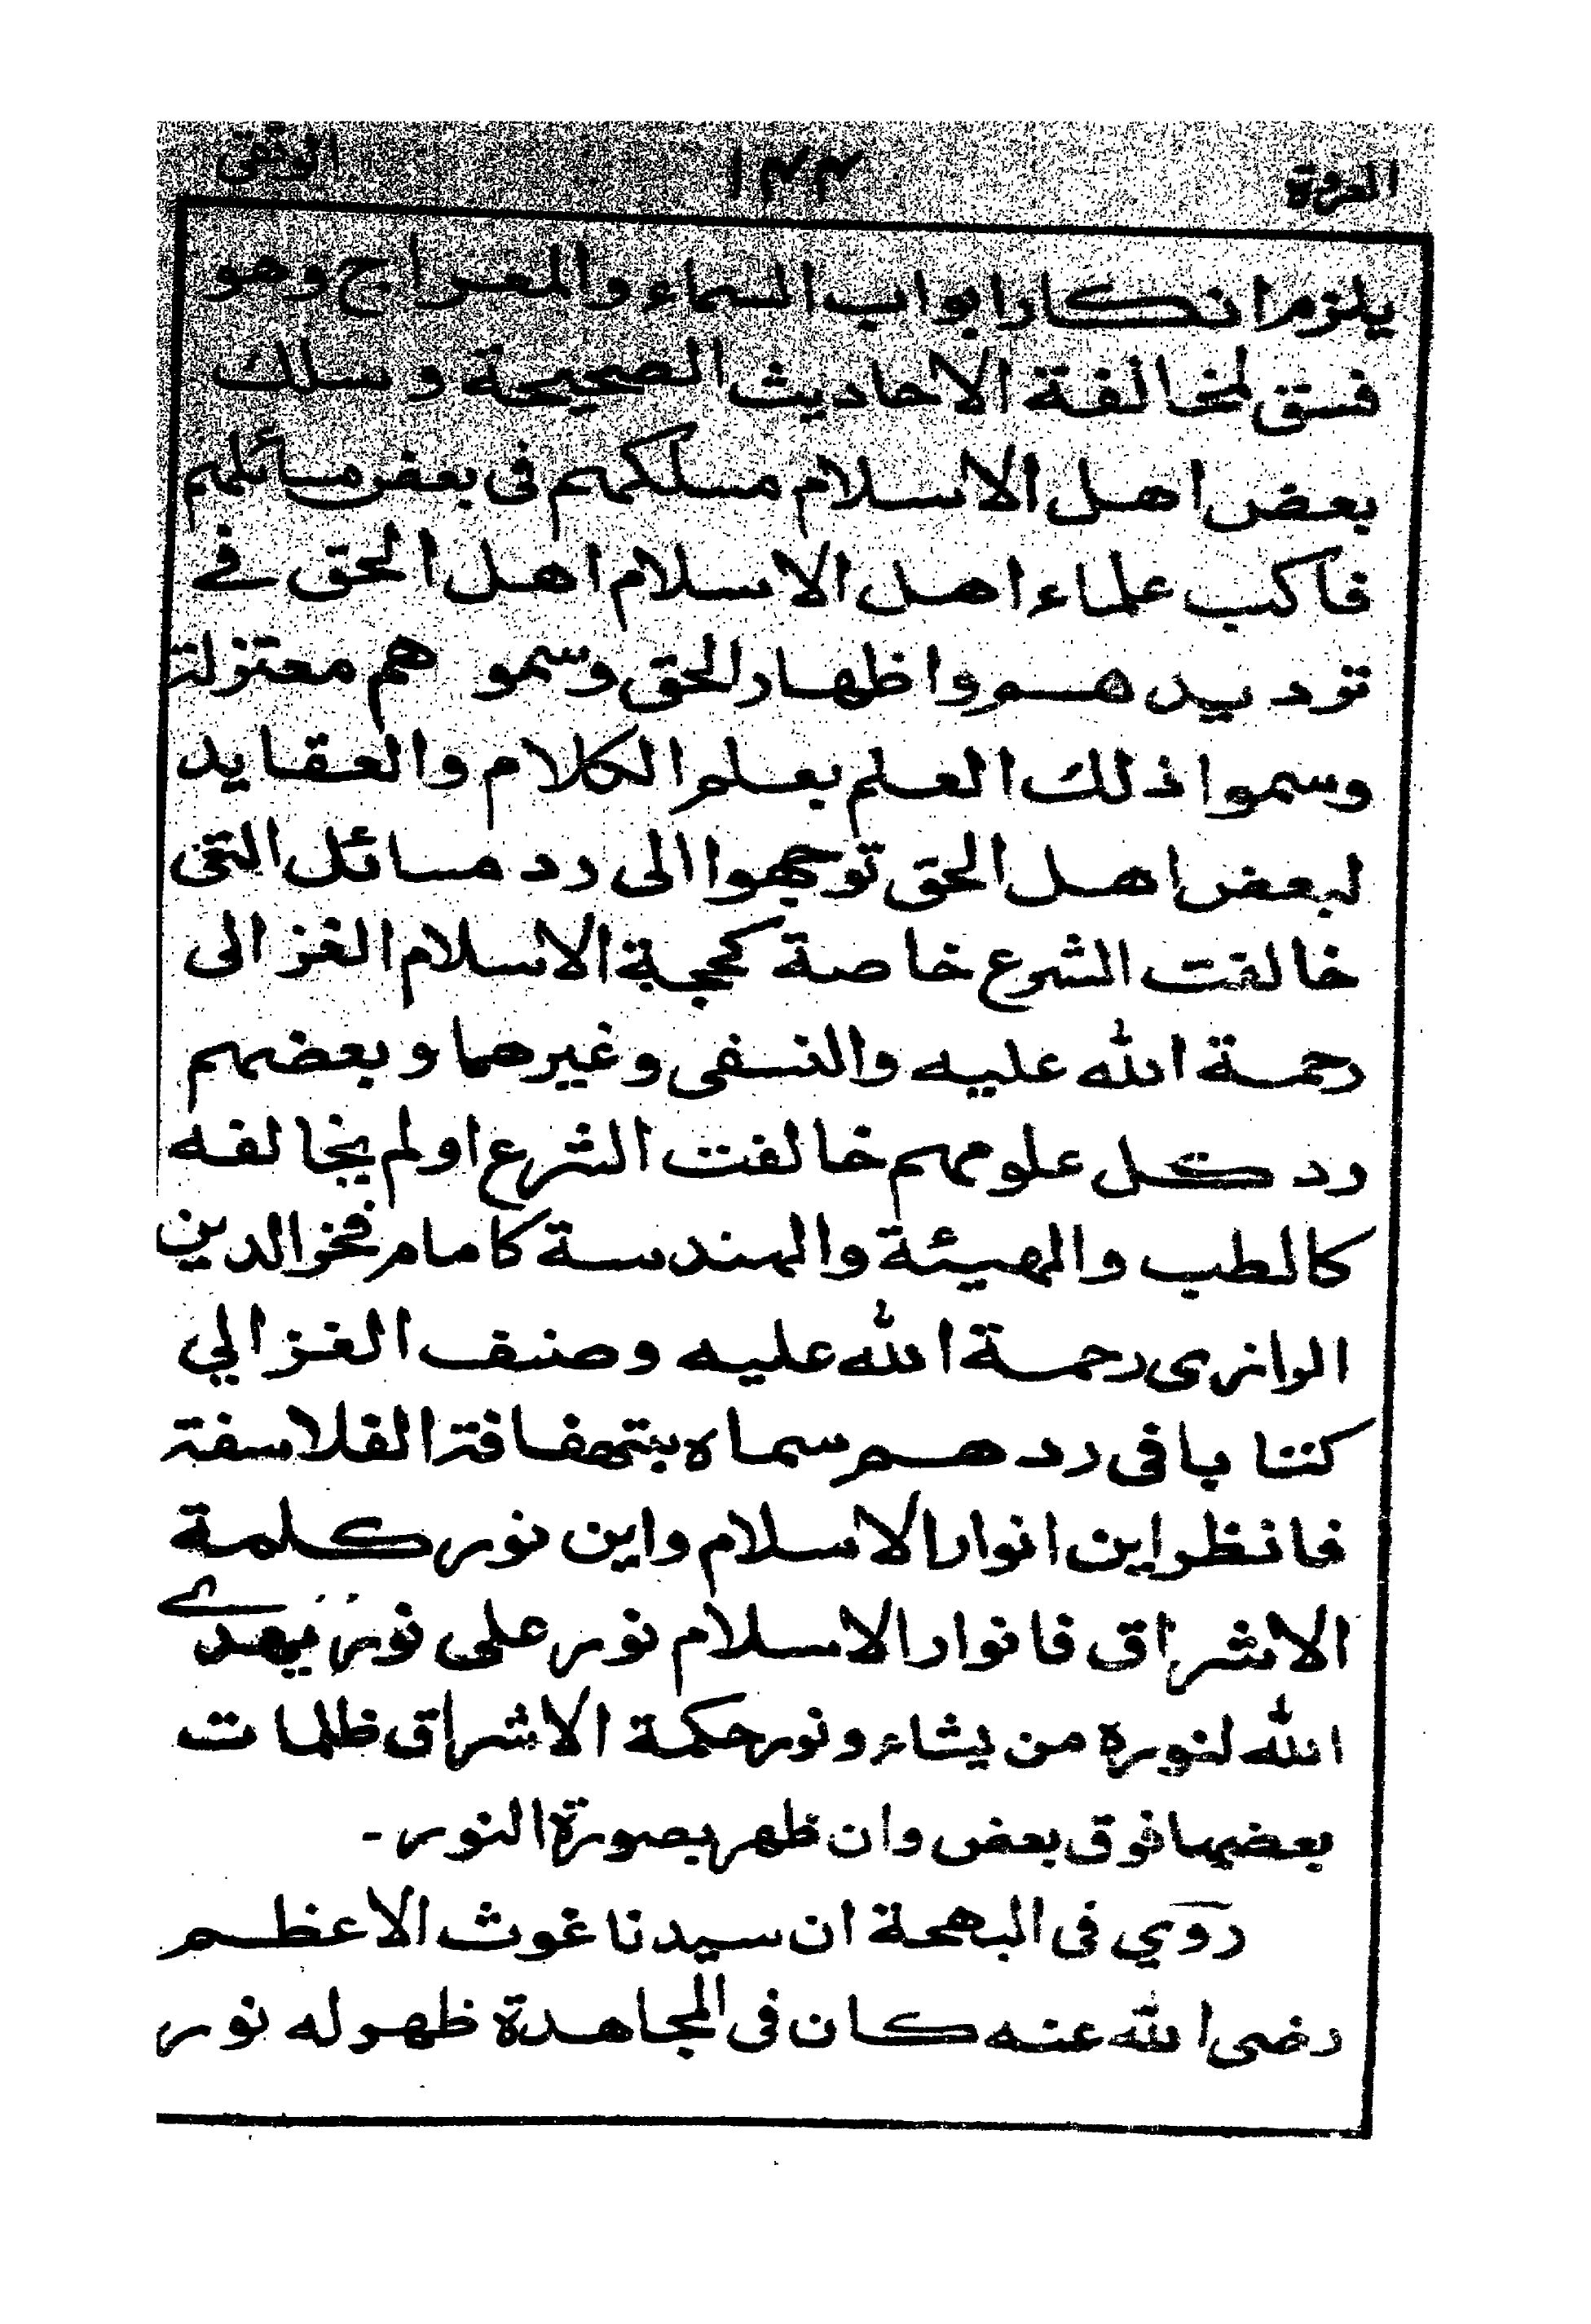 العروة ١٢٢ الوثقى
يلزم انكار ابواب السماء والمعراج وهو
فسق لمخالفة الاحاديث الصحيحة وسلك
بعض اهل الاسلام مسلكهم فى بعض مسائلهم
فاكب علماء اهل الاسلام اهل الحق في
ترديدهم واظهار الحق وسموهم معتزلة
وسموا ذلك العلم بعلم الكلام والعقايد
لبعض اهل الحق توجهوا الى رد مسائل التى
خالفت الشرع خاصة كحجة الاسلام الغزالى
رحمة الله عليه والنسفى وغيرهما وبعضهم
رد كل علومهم خالفت الشرع اولم يخالفه
كالطب والهيئة والهندسة كامام فخر الدين
الرازى رحمة الله عليه وصنف الغزالي
كتابا فى ردهم سماه بتهافة الفلاسفة
فانظر اين انوار الاسلام واين نور كلمة
الاشراق فانوار الاسلام نور على نور يهدے
الله لنوره من يشاء ونور حكمة الاشراق ظلمات
بعضها فوق بعض وان ظهر بصورة النور ـ
روي فى البهجة ان سيدنا غوث الاعظم
رضى الله عنه كان فى المجاهدة ظهر له نور